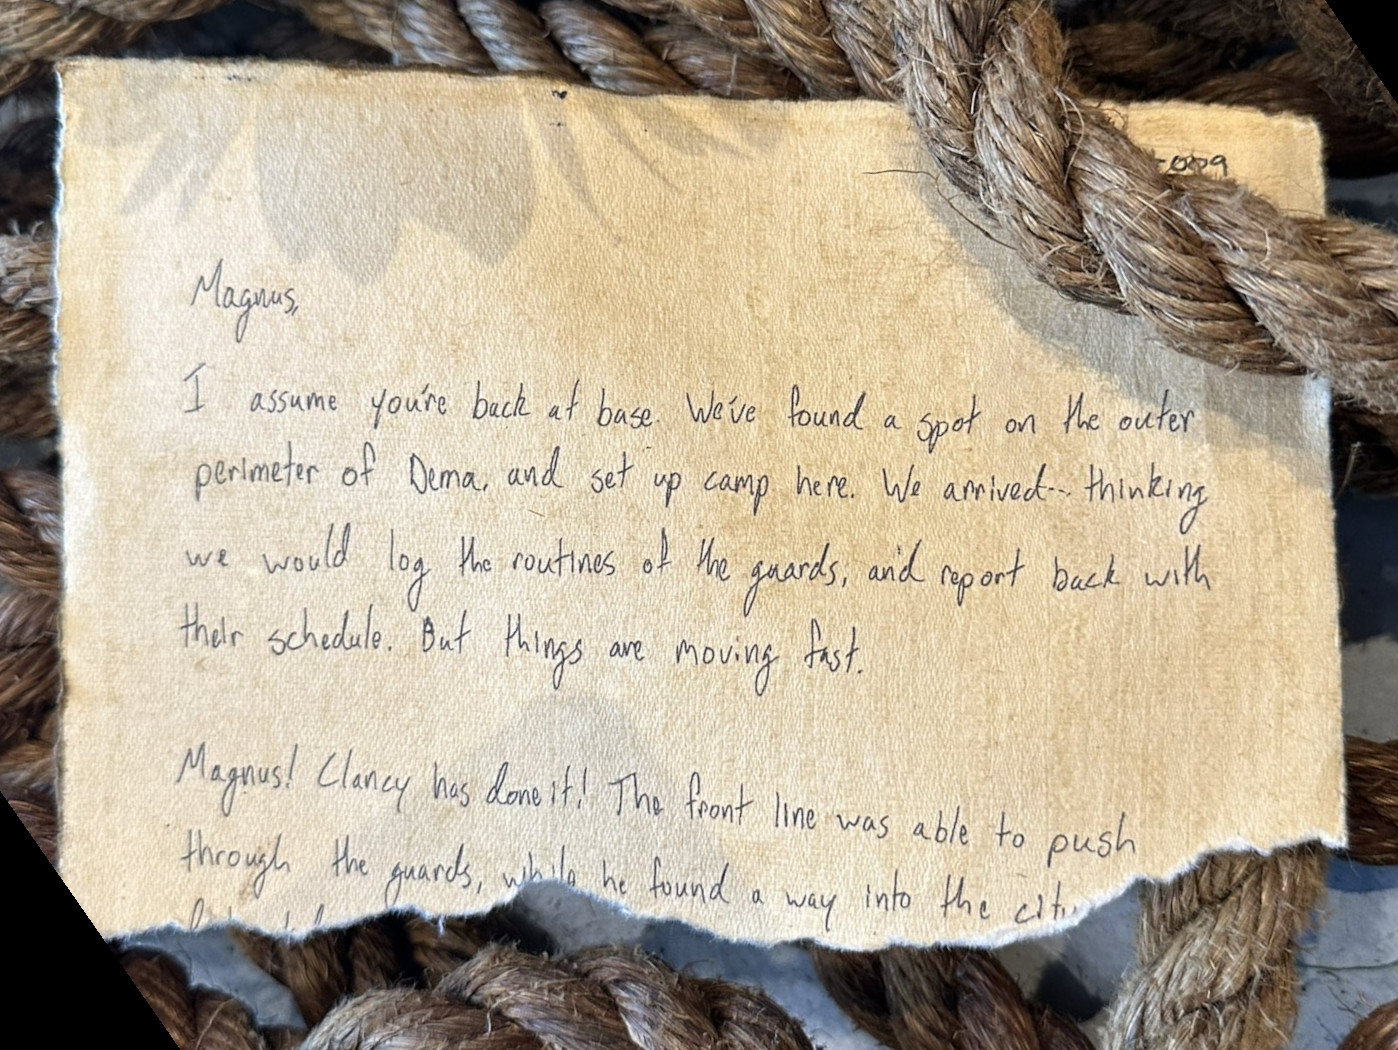 Magnus,
I assume you're back at base. We've found a spot on the outer
perimeter of Dema, and set up camp here. We arrived-- thinking
we would log the routines of the guards, and report back with
their schedule. But things are moving fast.
Magnus! Clancy has done it! The front line was able to push
through the guards, while he found a way into the city